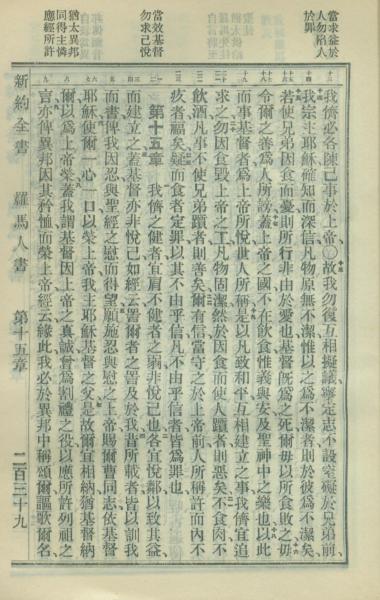 當求益於
人勿陷人
於罪
當效基督
勿求己悅
猶太異邦
同得主憐
應經所許
我儕必各陳己事於上帝〇故我勿復互相擬議寧定志不設窒礙於兄弟前
我宗主耶穌確知而深信凡物原無不潔惟以之爲不潔者則於彼爲不潔矣
若使兄弟因食而憂則所行非由於愛也基督旣爲之死爾毋以所食敗之毋
令爾之善爲人所謗蓋上帝之國不在飲食惟義與安及聖神中之樂也以此
而事基督者爲上帝所悅世人所稱是以凡致和平互相建立之事我儕宜追
求之勿因食毀上帝之工凡物固潔然於因食而使人躓者則惡矣不食肉不
飲酒凡事不使兄弟躓者則善矣爾有信當守之於上帝前人所稱許而內不
疚者福矣疑而食者定罪以其不由乎信凡不由乎信者皆爲罪也
第十五章 我儕之健者宜肩不健者之弱非悅己也各宜悅鄰以致其益
而建立之蓋基督亦非悅己如經云詈爾者之詈及於我昔所載者皆以訓我
而書俾我因忍與聖經之慰而得望願施忍與慰之上帝賜爾曹同志依基督
耶穌使爾一心一口以榮上帝我主耶穌基督之父是故爾宜相納猶基督納
爾以爲上帝榮蓋我謂基督因上帝之真誠嘗爲割禮之役以應所許列祖之
言亦俾異邦因其矜恤而榮上帝經云緣此我必於異邦中稱頌爾謳歌爾名
新約全書 羅馬人書 第十五章 二百三十九